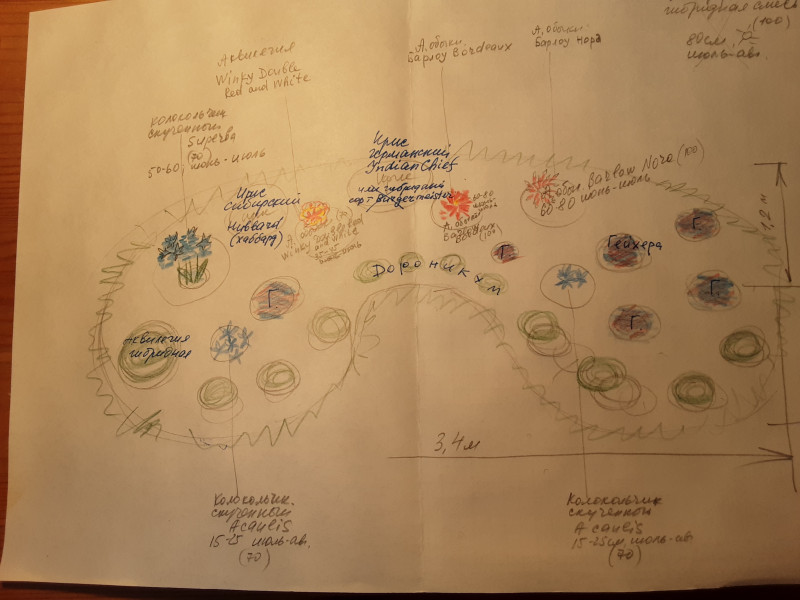 гибридная смесь
(100)
80см,
июль-ав.
Аквилегия
Winky Double
Red and White
А. обыкн.
Барлоу Bordeaux
А. обыкн.
Барлоу Нора
колокольчик
скученный
(70)
50-60, июнь-июль
Ирис
германский
Indian Chief
или гибридный
сорт Burgermeister
Ирис
сибирский
(хаббард)
А. обыкн. (70)
Winky Double Red
and White
июнь
60-80
июнь
А. обыкн.
(100)
А. обыкн. Barlow Nora (100)
60-80 июнь-июль
1,2 м
Г
Г
Гейхера
Дороникум
Г
Г
Г
Аквилегия
гибридная
3,4 м
Колокольчик.
скученный
Acaulis
15-25 июль-ав.
(70)
Колокольчик
скученный
Acaulis
15-25см. июль-ав.
(70)